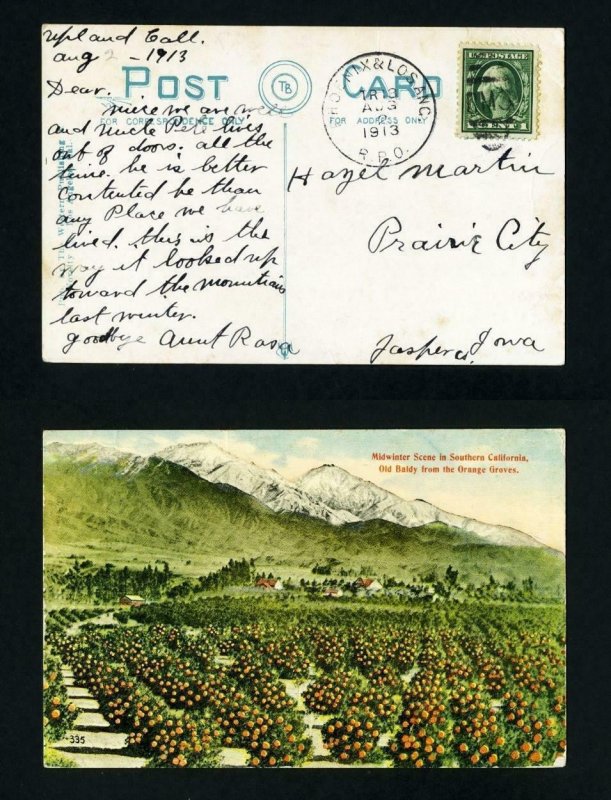 Upland Call.
aug 2 - 1913
POST CARD
TB
FOR CORRESPONDENCE ONLY
FOR ADDRESS ONLY
Dear.
niece we are well
and uncle Pete lives
out of doors. all the
time. he is better
Contented he than
any Place we have
lived. this is the
way it looked up
toward the mountains
last winter.
goodbye Aunt Rosa
PHOENIX & LOS ANG.
TR 13
AUG
2
1913
R.P.O.
1 CENT 1
Hazel Martin
Prairie City
Jasper Co, Iowa
Midwinter Scene in Southern California,
Old Baldy from the Orange Groves.
335